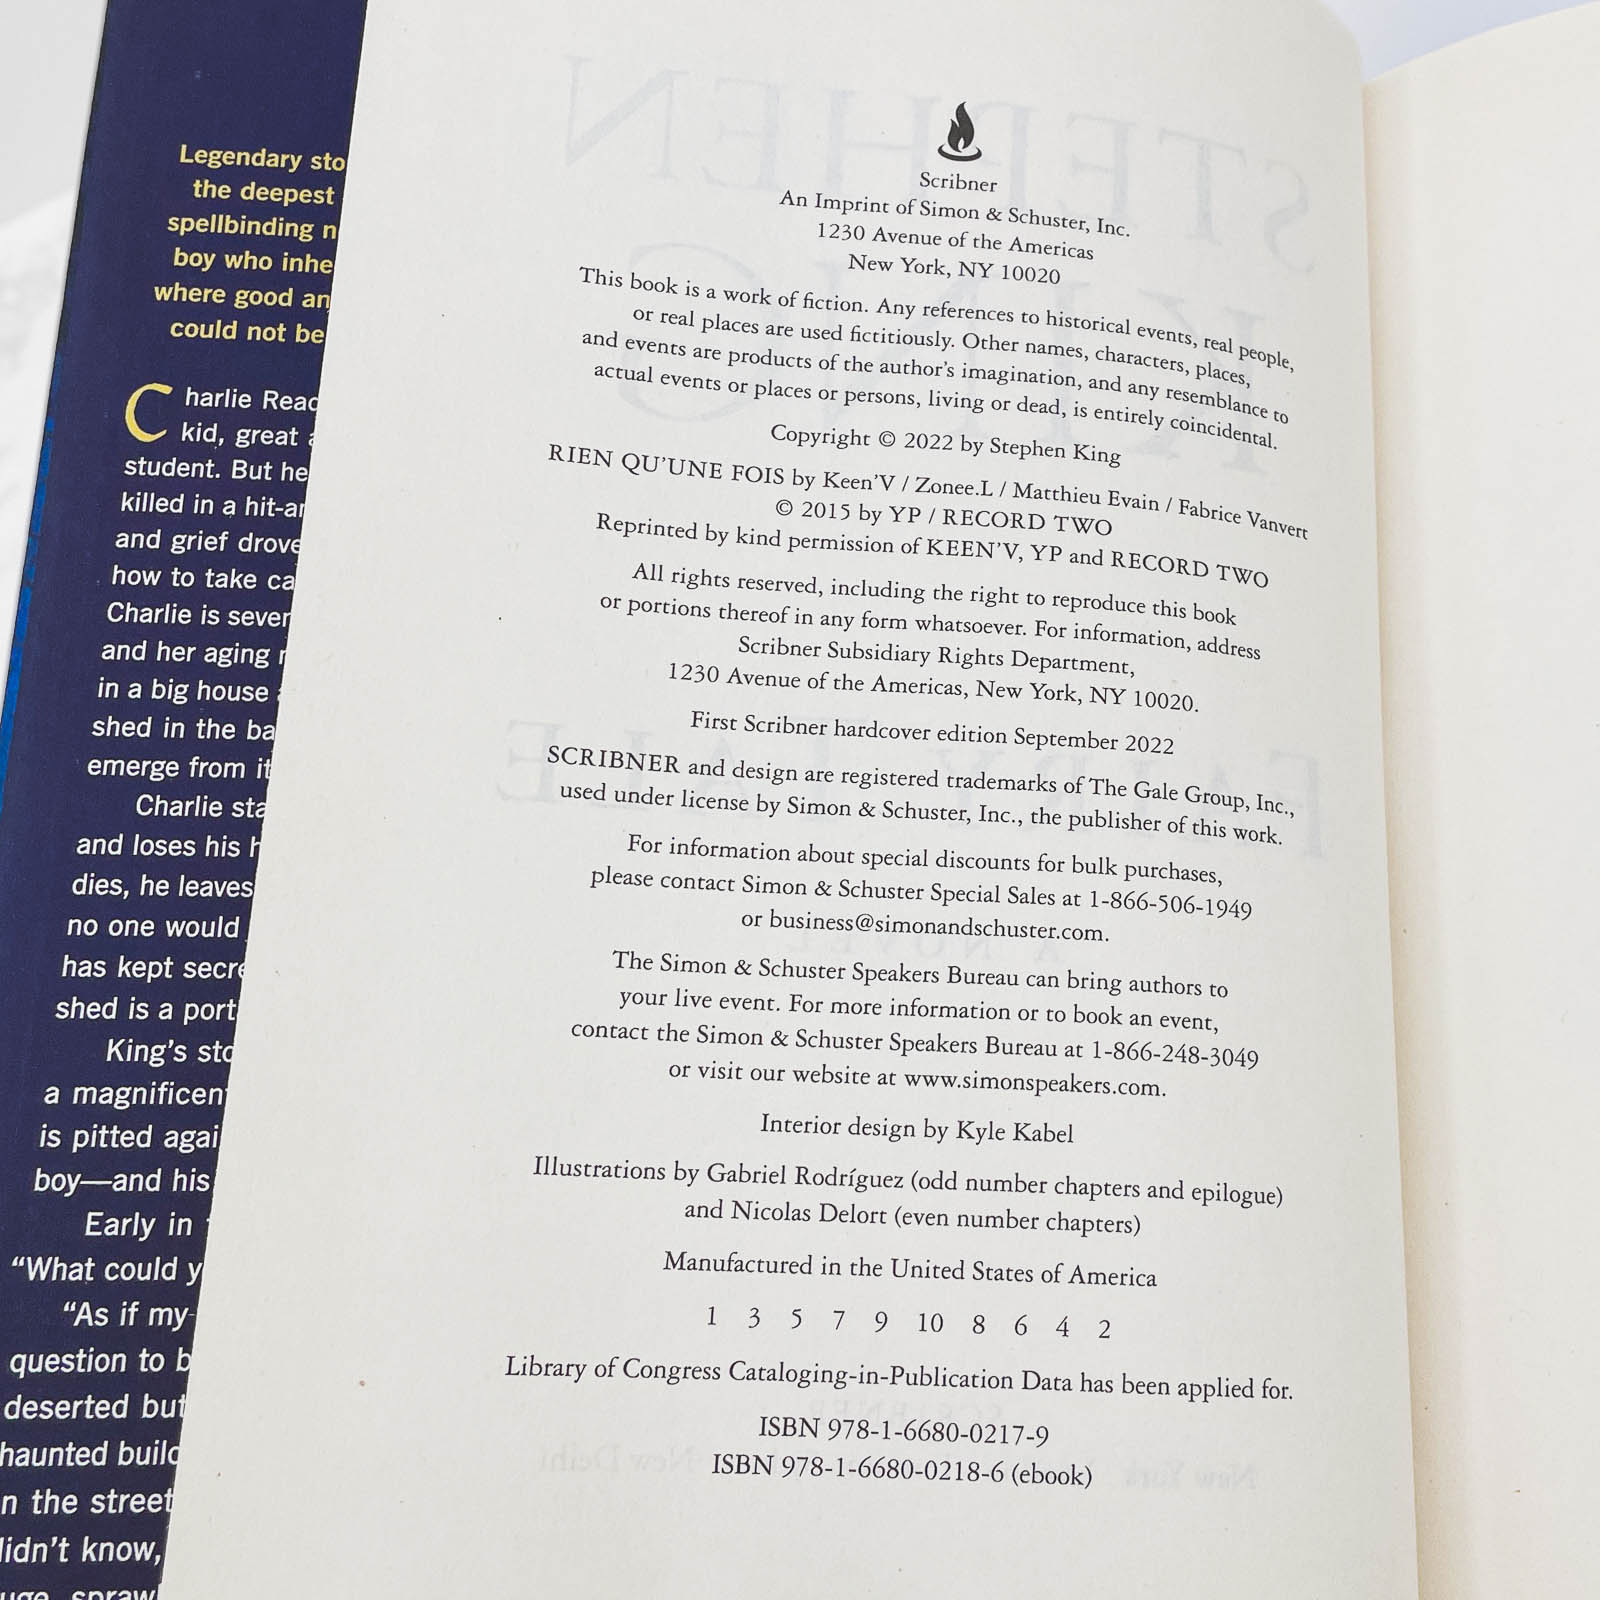 Legendary sto
the deepest
spellbinding n
boy who inhe
where good an
could not be
Charlie Read
kid, great
student. But he
killed in a hit-an
and grief drove
how to take ca
Charlie is seven
and her aging
in a big house
shed in the ba
emerge from it
Charlie sta
and loses his h
dies, he leaves
no one would
has kept secre
shed is a port
King's sto
a magnificen
is pitted agai
boy—and his
Early in
“What could y
“As if my
question to b
deserted but
haunted build
n the street
didn't know,
Scribner
An Imprint of Simon & Schuster, Inc.
1230 Avenue of the Americas
New York, NY 10020
This book is a work of fiction. Any references to historical events, real people,
or real places are used fictitiously. Other names, characters, places,
and events are products of the author's imagination, and any resemblance to
actual events or places or persons, living or dead, is entirely coincidental.
Copyright © 2022 by Stephen King
RIEN QU'UNE FOIS by Keen'V / Zonee.L / Matthieu Evain / Fabrice Vanvert
© 2015 by YP / RECORD TWO
Reprinted by kind permission of KEEN'V, YP and RECORD TWO
All rights reserved, including the right to reproduce this book
or portions thereof in any form whatsoever. For information, address
Scribner Subsidiary Rights Department,
1230 Avenue of the Americas, New York, NY 10020.
First Scribner hardcover edition September 2022
SCRIBNER and design are registered trademarks of The Gale Group, Inc.,
used under license by Simon & Schuster, Inc., the publisher of this work.
For information about special discounts for bulk purchases,
please contact Simon & Schuster Special Sales at 1-866-506-1949
or business@simonandschuster.com.
The Simon & Schuster Speakers Bureau can bring authors to
your live event. For more information or to book an event,
contact the Simon & Schuster Speakers Bureau at 1-866-248-3049
or visit our website at www.simonspeakers.com.
Interior design by Kyle Kabel
Illustrations by Gabriel Rodríguez (odd number chapters and epilogue)
and Nicolas Delort (even number chapters)
Manufactured in the United States of America
1 3 5 7 9 10 8 6 4 2
Library of Congress Cataloging-in-Publication Data has been applied for.
ISBN 978-1-6680-0217-9
ISBN 978-1-6680-0218-6 (ebook)